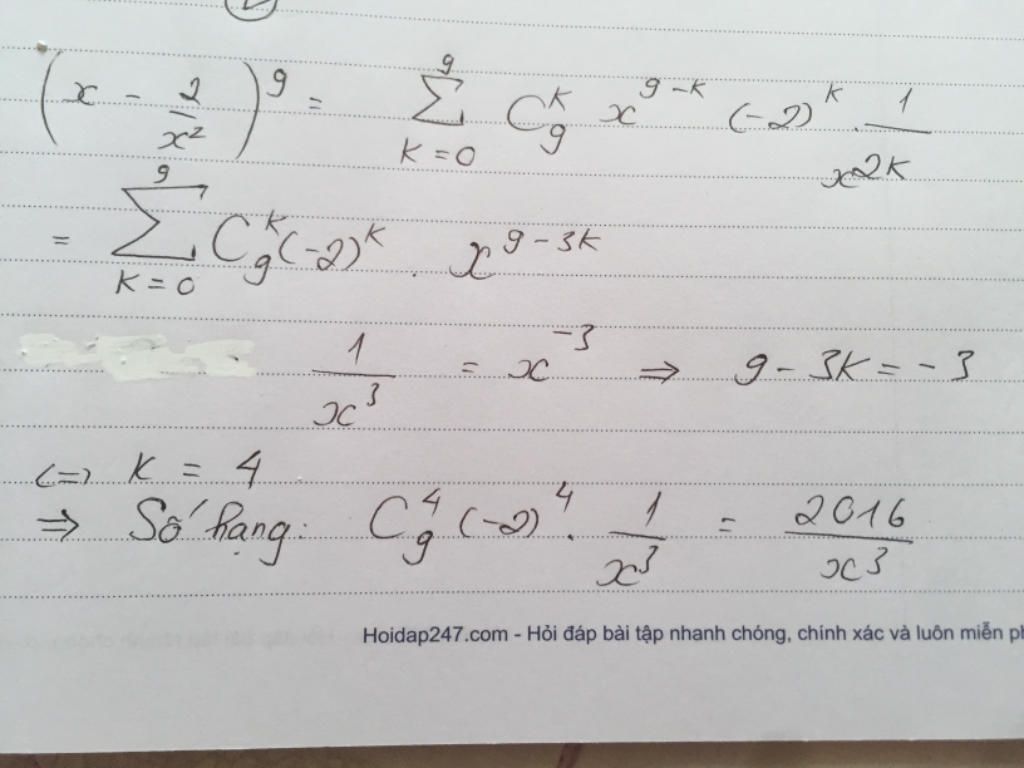 (x - 2/x²)⁹ = ∑_{K=0}^{9} C_9^K x^{9-K} (-2)^K . 1/x^{2K}
= ∑_{K=0}^{9} C_9^K (-2)^K . x^{9-3K}
1/x³ = x^{-3} ⇒ 9 - 3K = -3
<=> K = 4
⇒ Số hạng: C_9^4 (-2)^4 . 1/x³ = 2016/x³
Hoidap247.com - Hỏi đáp bài tập nhanh chóng, chính xác và luôn miễn